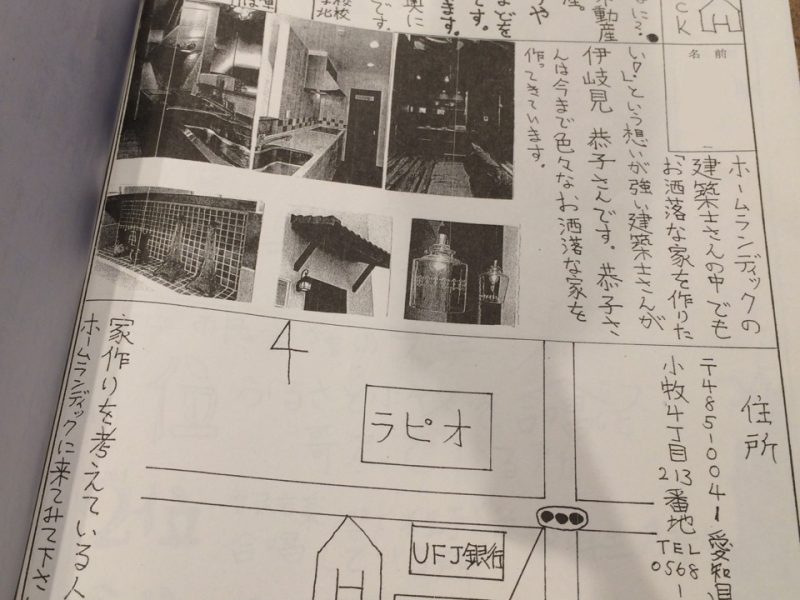 CK
H
なに?
不動産
産。
名前
ホームランディックの
建築士さんの中でも
「お洒落な家を作りた
い!」という想いが強い建築士さんが
伊岐見 恭子さんです。恭子さ
んは今まで色々なお洒落な家を
作ってきています。
住所
〒485-0041 愛知県
小牧4丁目213番地
TEL
0568-
ラピオ
UFJ銀行
H
4
家作りを考えている人
ホームランディックに来てみて下さ